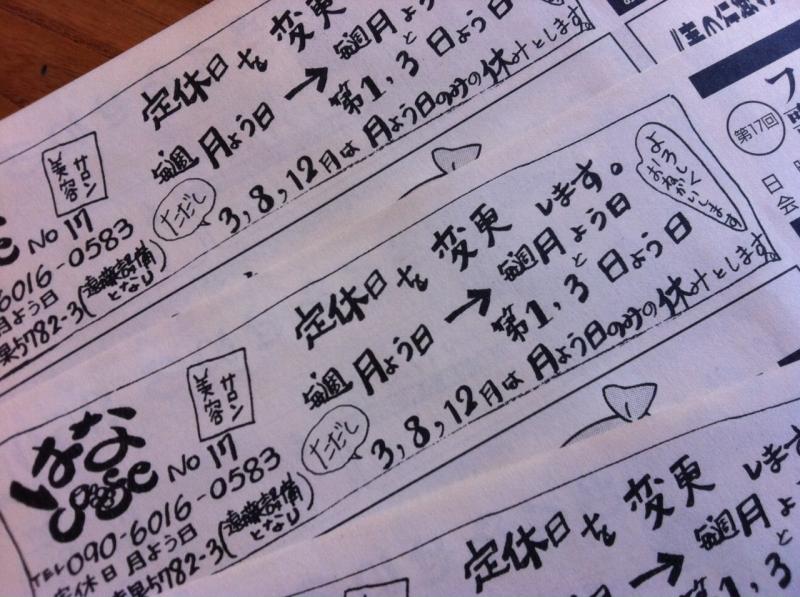 定休日を 変更
毎週 月よう日 → 毎週 月よう日
と
第1, 3 日よう日
ただし 3, 8, 12月は 月よう日のみの休みとします。
美容サロン
No 17
6016-0583
月よう日
5782-3(遠藤設備となり)
第17回
定休日を 変更 します。
毎週 月よう日 → 毎週 月よう日
と
第1, 3 日よう日
ただし 3, 8, 12月は 月よう日のみの休みとします。
よろしくおねがいします
美容サロン
はな
No 17
TEL 090-6016-0583
定休日 月よう日
5782-3(遠藤設備となり)
定休日を 変更 します
毎週 月よ
と
1, 3
日
会